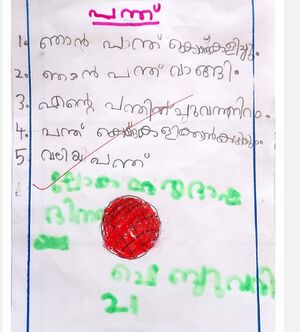 പന്ത്
1. ഞാൻ പാന്ത് കൊണ്ട്കളിച്ചു.
2. ഞാൻ പന്ത് വാങ്ങി.
3. എന്റെ പന്തിന് ചുവന്നനിറം.
4. പന്ത് കൊണ്ട്
5. വലിയ പന്ത്
ലോക മാതൃഭാഷ
ദിനം
ഫെബ്രുവരി
21